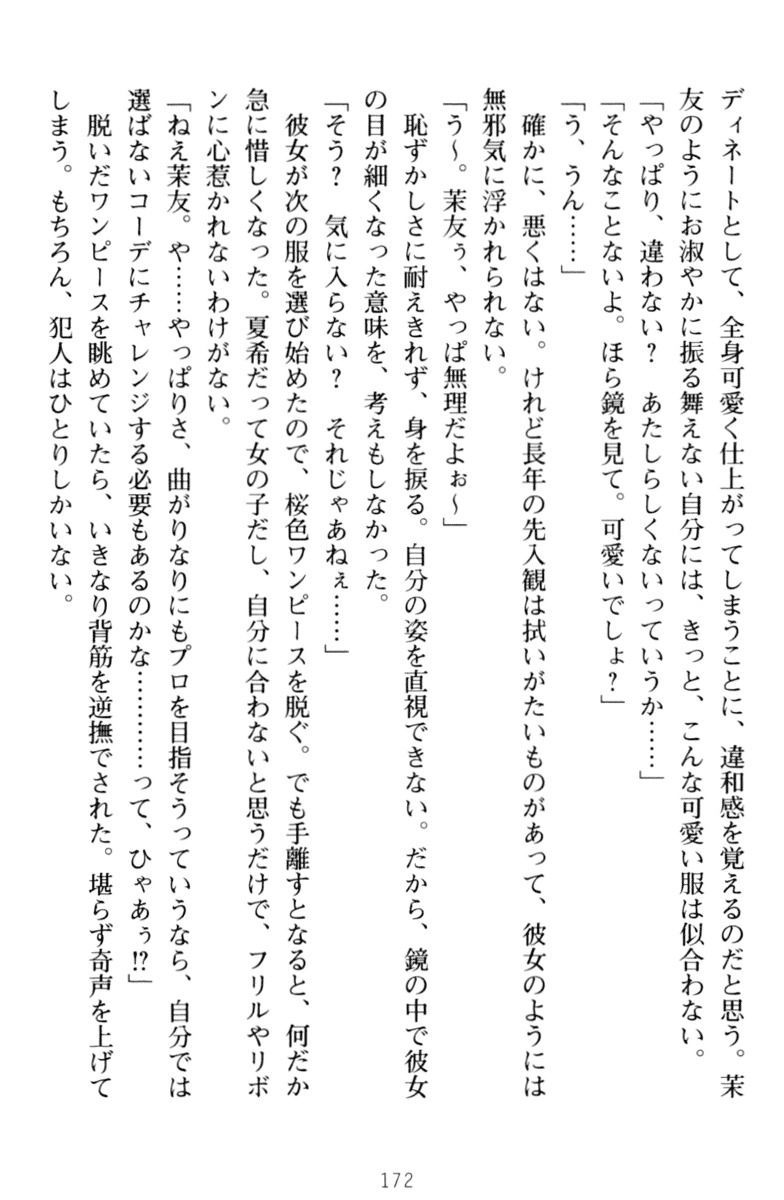 ディネートとして、全身可愛く仕上がってしまうことに、違和感を覚えるのだと思う。茉
友のようにお淑やかに振る舞えない自分には、きっと、こんな可愛い服は似合わない。
「やっぱり、違わない？　あたしらしくないっていうか……」
「そんなことないよ。ほら鏡を見て。可愛いでしょ？」
「う、うん……」
　確かに、悪くはない。けれど長年の先入観は拭いがたいものがあって、彼女のようには
無邪気に浮かれられない。
「う～。茉友ぅ、やっぱ無理だよぉ～」
　恥ずかしさに耐えきれず、身を捩る。自分の姿を直視できない。だから、鏡の中で彼女
の目が細くなった意味を、考えもしなかった。
「そう？　気に入らない？　それじゃあねぇ……」
　彼女が次の服を選び始めたので、桜色ワンピースを脱ぐ。でも手離すとなると、何だか
急に惜しくなった。夏希だって女の子だし、自分に合わないと思うだけで、フリルやリボ
ンに心惹かれないわけがない。
「ねえ茉友。や……やっぱりさ、曲がりなりにもプロを目指そうっていうなら、自分では
選ばないコーデにチャレンジする必要もあるのかな…………って、ひゃあぅ!?」
　脱いだワンピースを眺めていたら、いきなり背筋を逆撫でされた。堪らず奇声を上げて
しまう。もちろん、犯人はひとりしかいない。
172